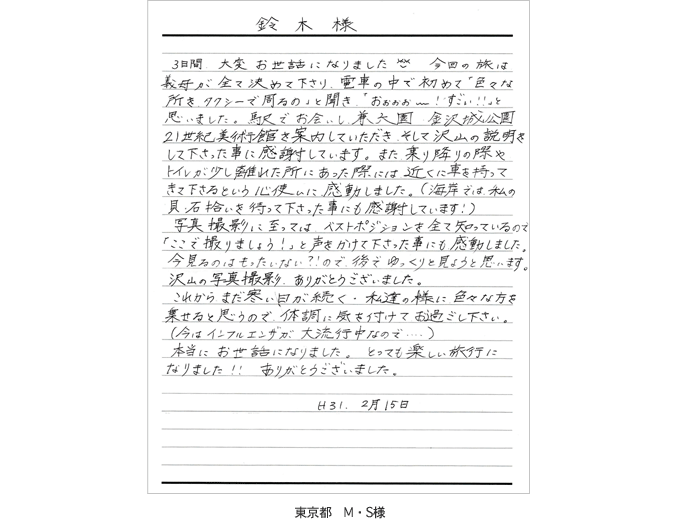 鈴木様
3日間、大変お世話になりました 今回の旅は
義母が全て決めて下さり、電車の中で初めて「色々な
所をタクシーで周るの」と聞き、「おぉぉぉ〜!すごい!!」と
思いました。駅でお会いし、兼六園 金沢城公園
21世紀美術館を案内していただき、そして沢山の説明を
して下さった事に感謝しています。また、乗り降りの際や
トイレが少し離れた所にあった際には近くに車を持って
きて下さるという心使いに感動しました。(海岸では、私の
貝、石拾いを待って下さった事にも感謝しています!)
写真撮影に至っては、ベストポジションを全て知っているので
「ここで撮りましょう!」と声をかけて下さった事にも感動しました。
今見るのはもったいない?!ので、後でゆっくりと見ようと思います。
沢山の写真撮影、ありがとうございました。
これからまだ寒い日が続く・私達の様に色々な方を
乗せると思うので、体調に気を付けてお過ごし下さい。
(今はインフルエンザが、大流行中なので‥‥)
本当にお世話になりました。とっても楽しい旅行に
なりました!! ありがとうございました。
H31. 2月15日
東京都 M・S様